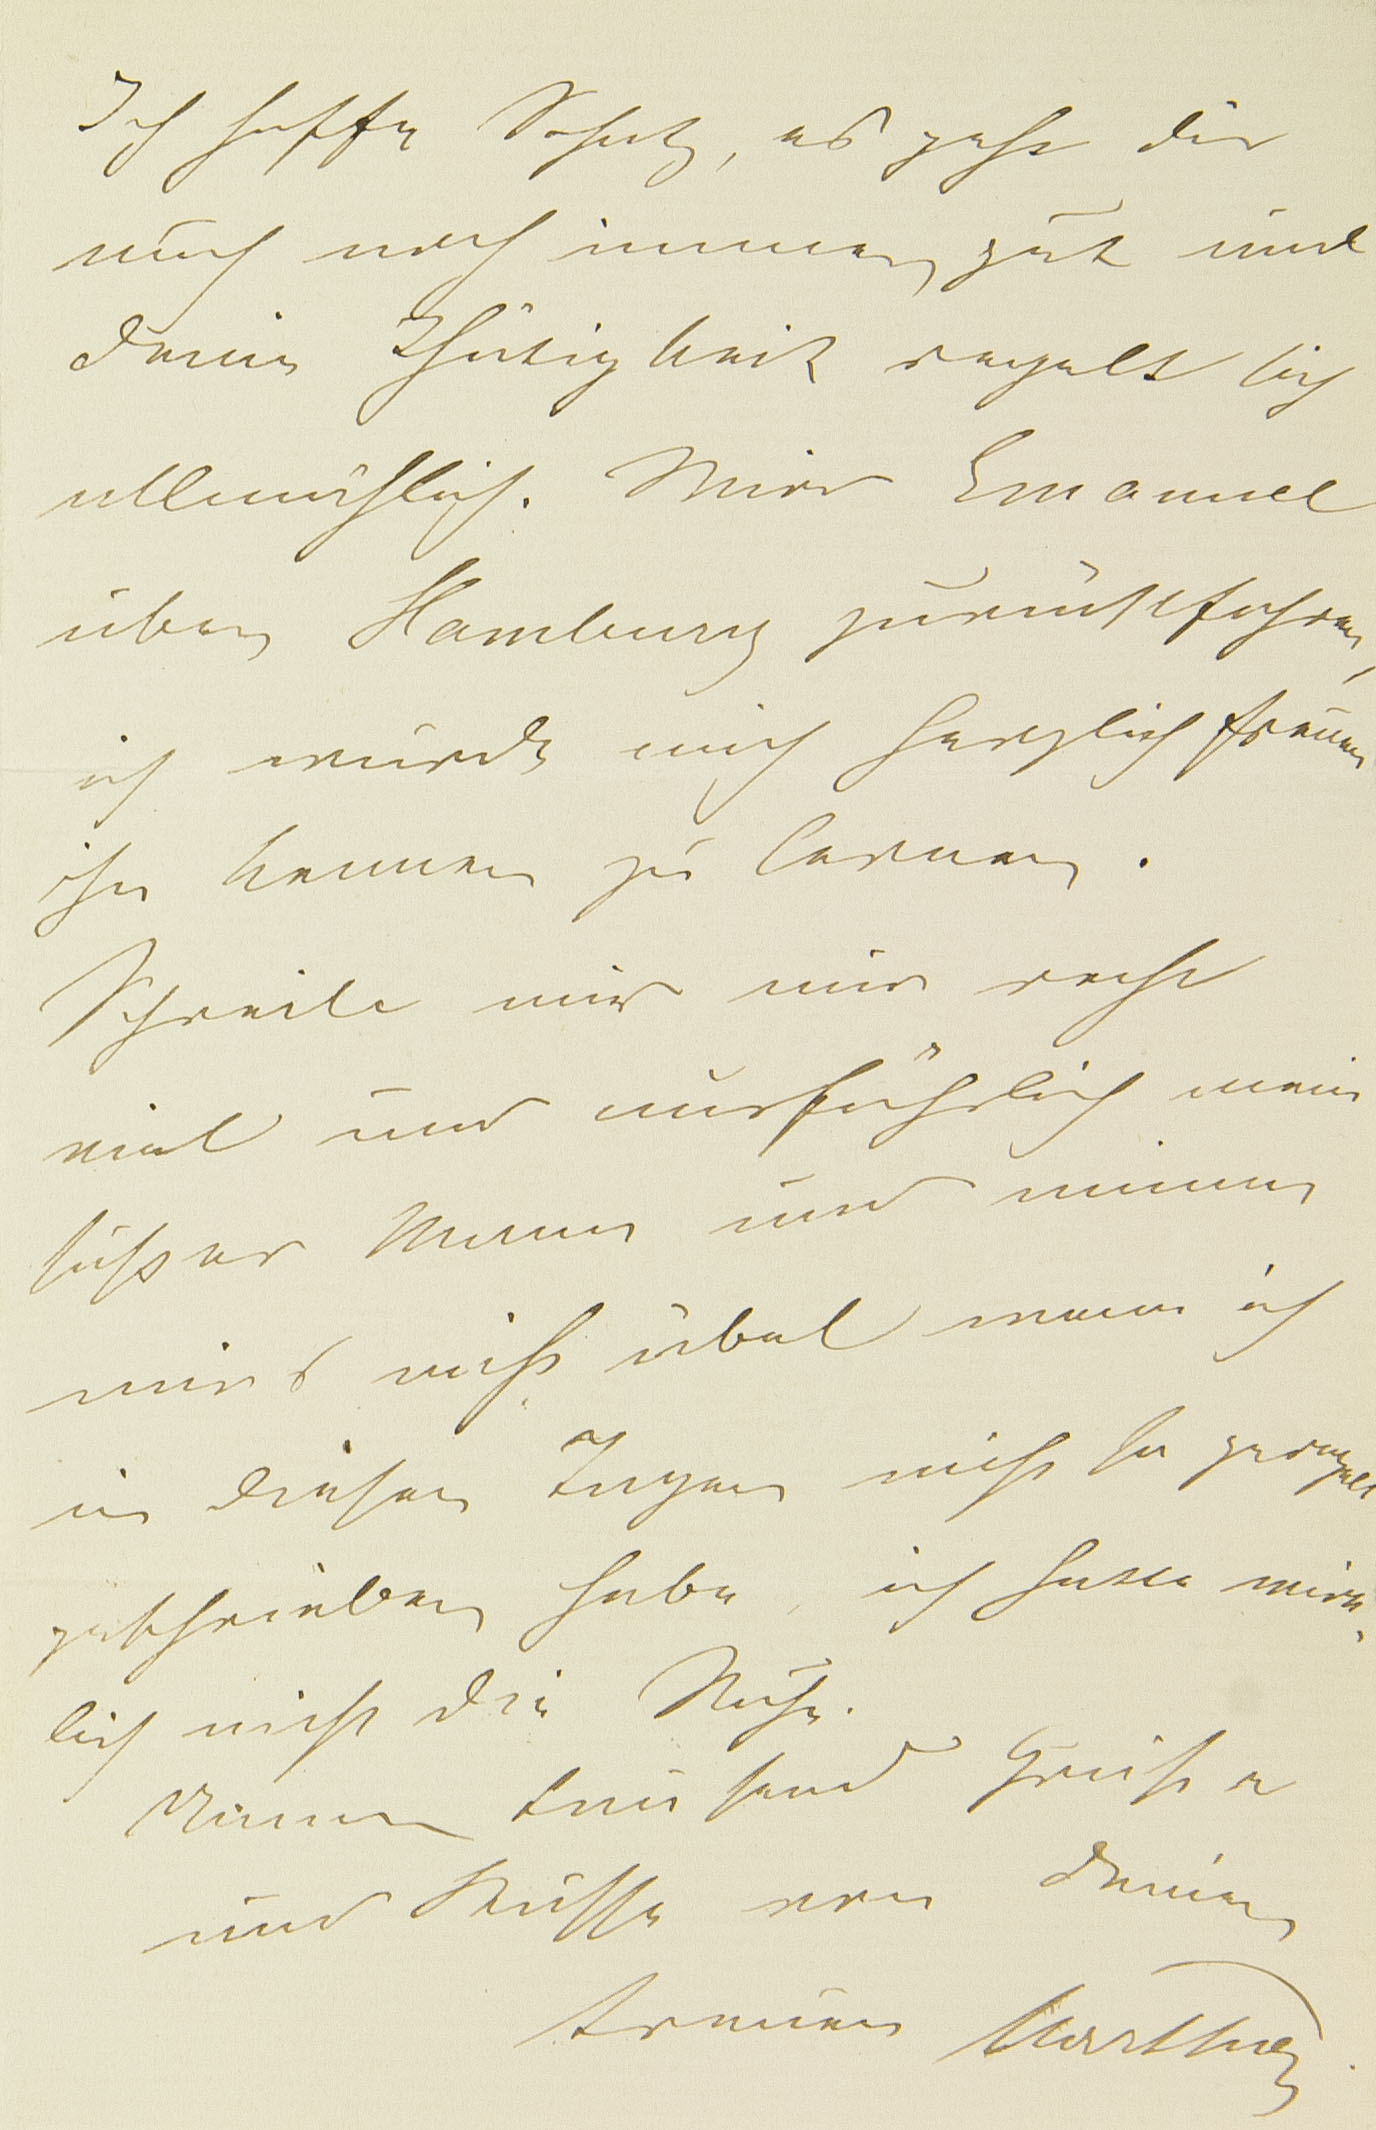 Ich hoffe Schatz, es geht dir
auch noch immer gut und
deine Thätigkeit regelt sich
allmählich. Wird Emanuel
über Hamburg zurückfahren,
ich würde mich herzlich freuen
ihn kennen zu lernen.
Schreibe mir nur recht
viel und ausführlich mein
süßer Mann und nimm
mirs nicht übel wenn ich
in diesen Tagen nicht so
geschrieben habe, ich hatte wirk-
lich nicht die Ruhe.
Nimm tausend Grüße
und Küsse von deiner
treuen Martha